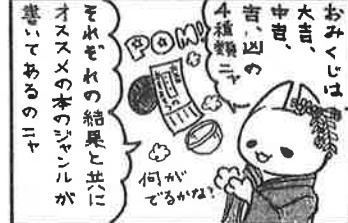 おみくじは
大吉、
中吉、
吉、凶の
４種類ニャ
POM!
それぞれの結果と共に
オススメの本のジャンルが
書いてあるのニャ
何が
でるかな?